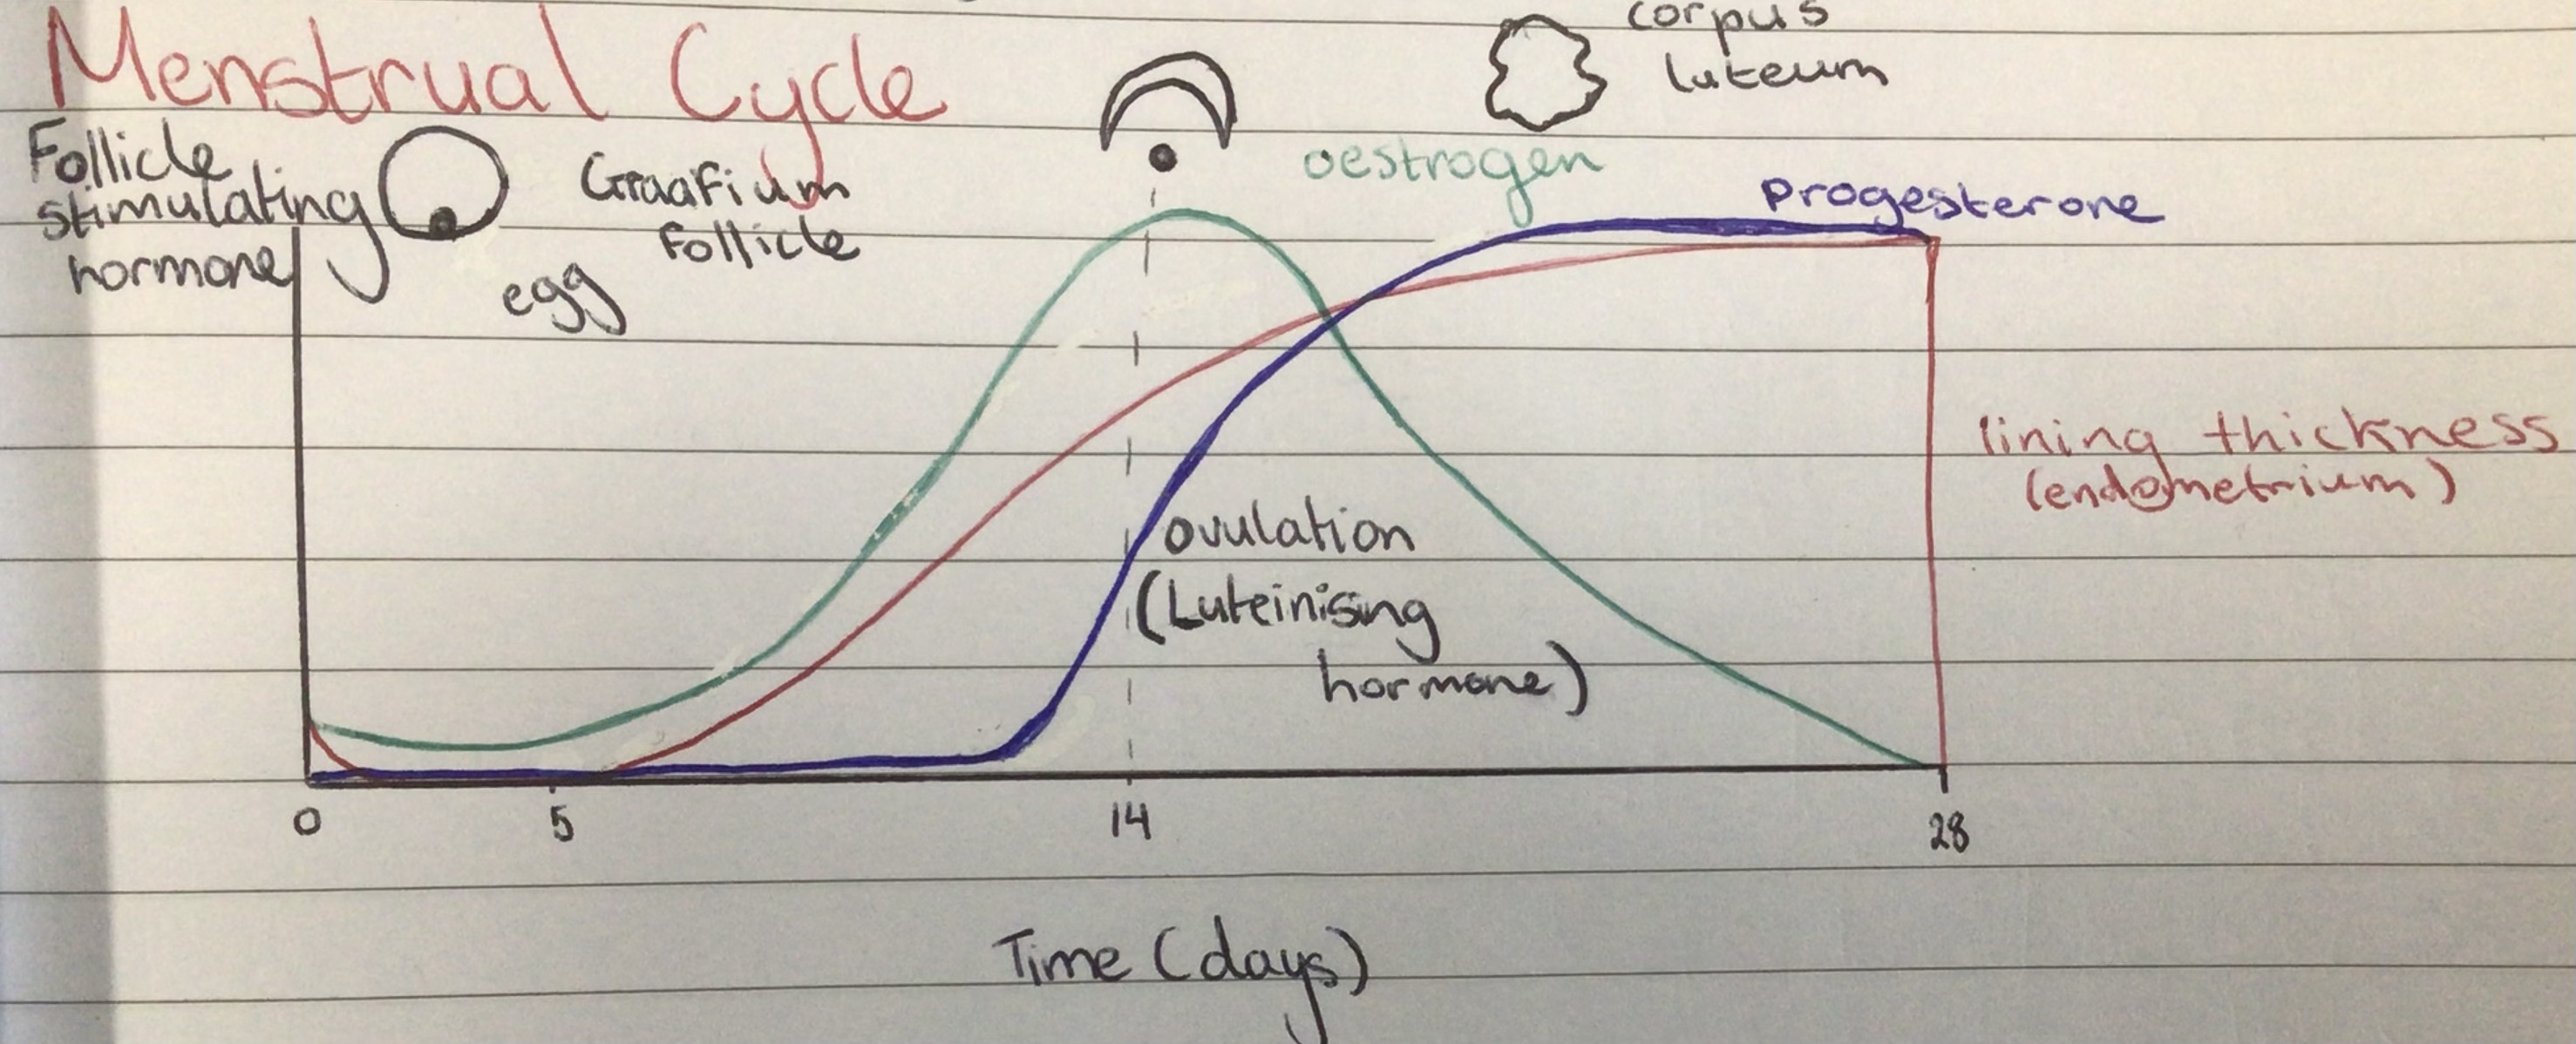 Menstrual Cycle
Follicle
stimulating
hormone
Graafium
follicle
egg
corpus
luteum
oestrogen
progesterone
lining thickness
(endometrium)
ovulation
(Luteinising
hormone)
0 5 14 28
Time (days)